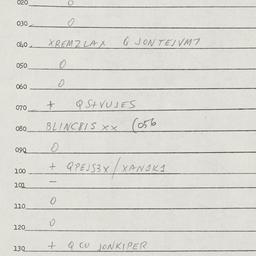 020 0
030 0
040 XREMZLAX 6 JONTEJVM7
050 0
060 0
070 + QS+VUJES
080 BLINCBIS xx (056
090 0
100 + QPEJS3X/XANJK1
101 —
110 0
120 0
130 + Q CU JONKIPER